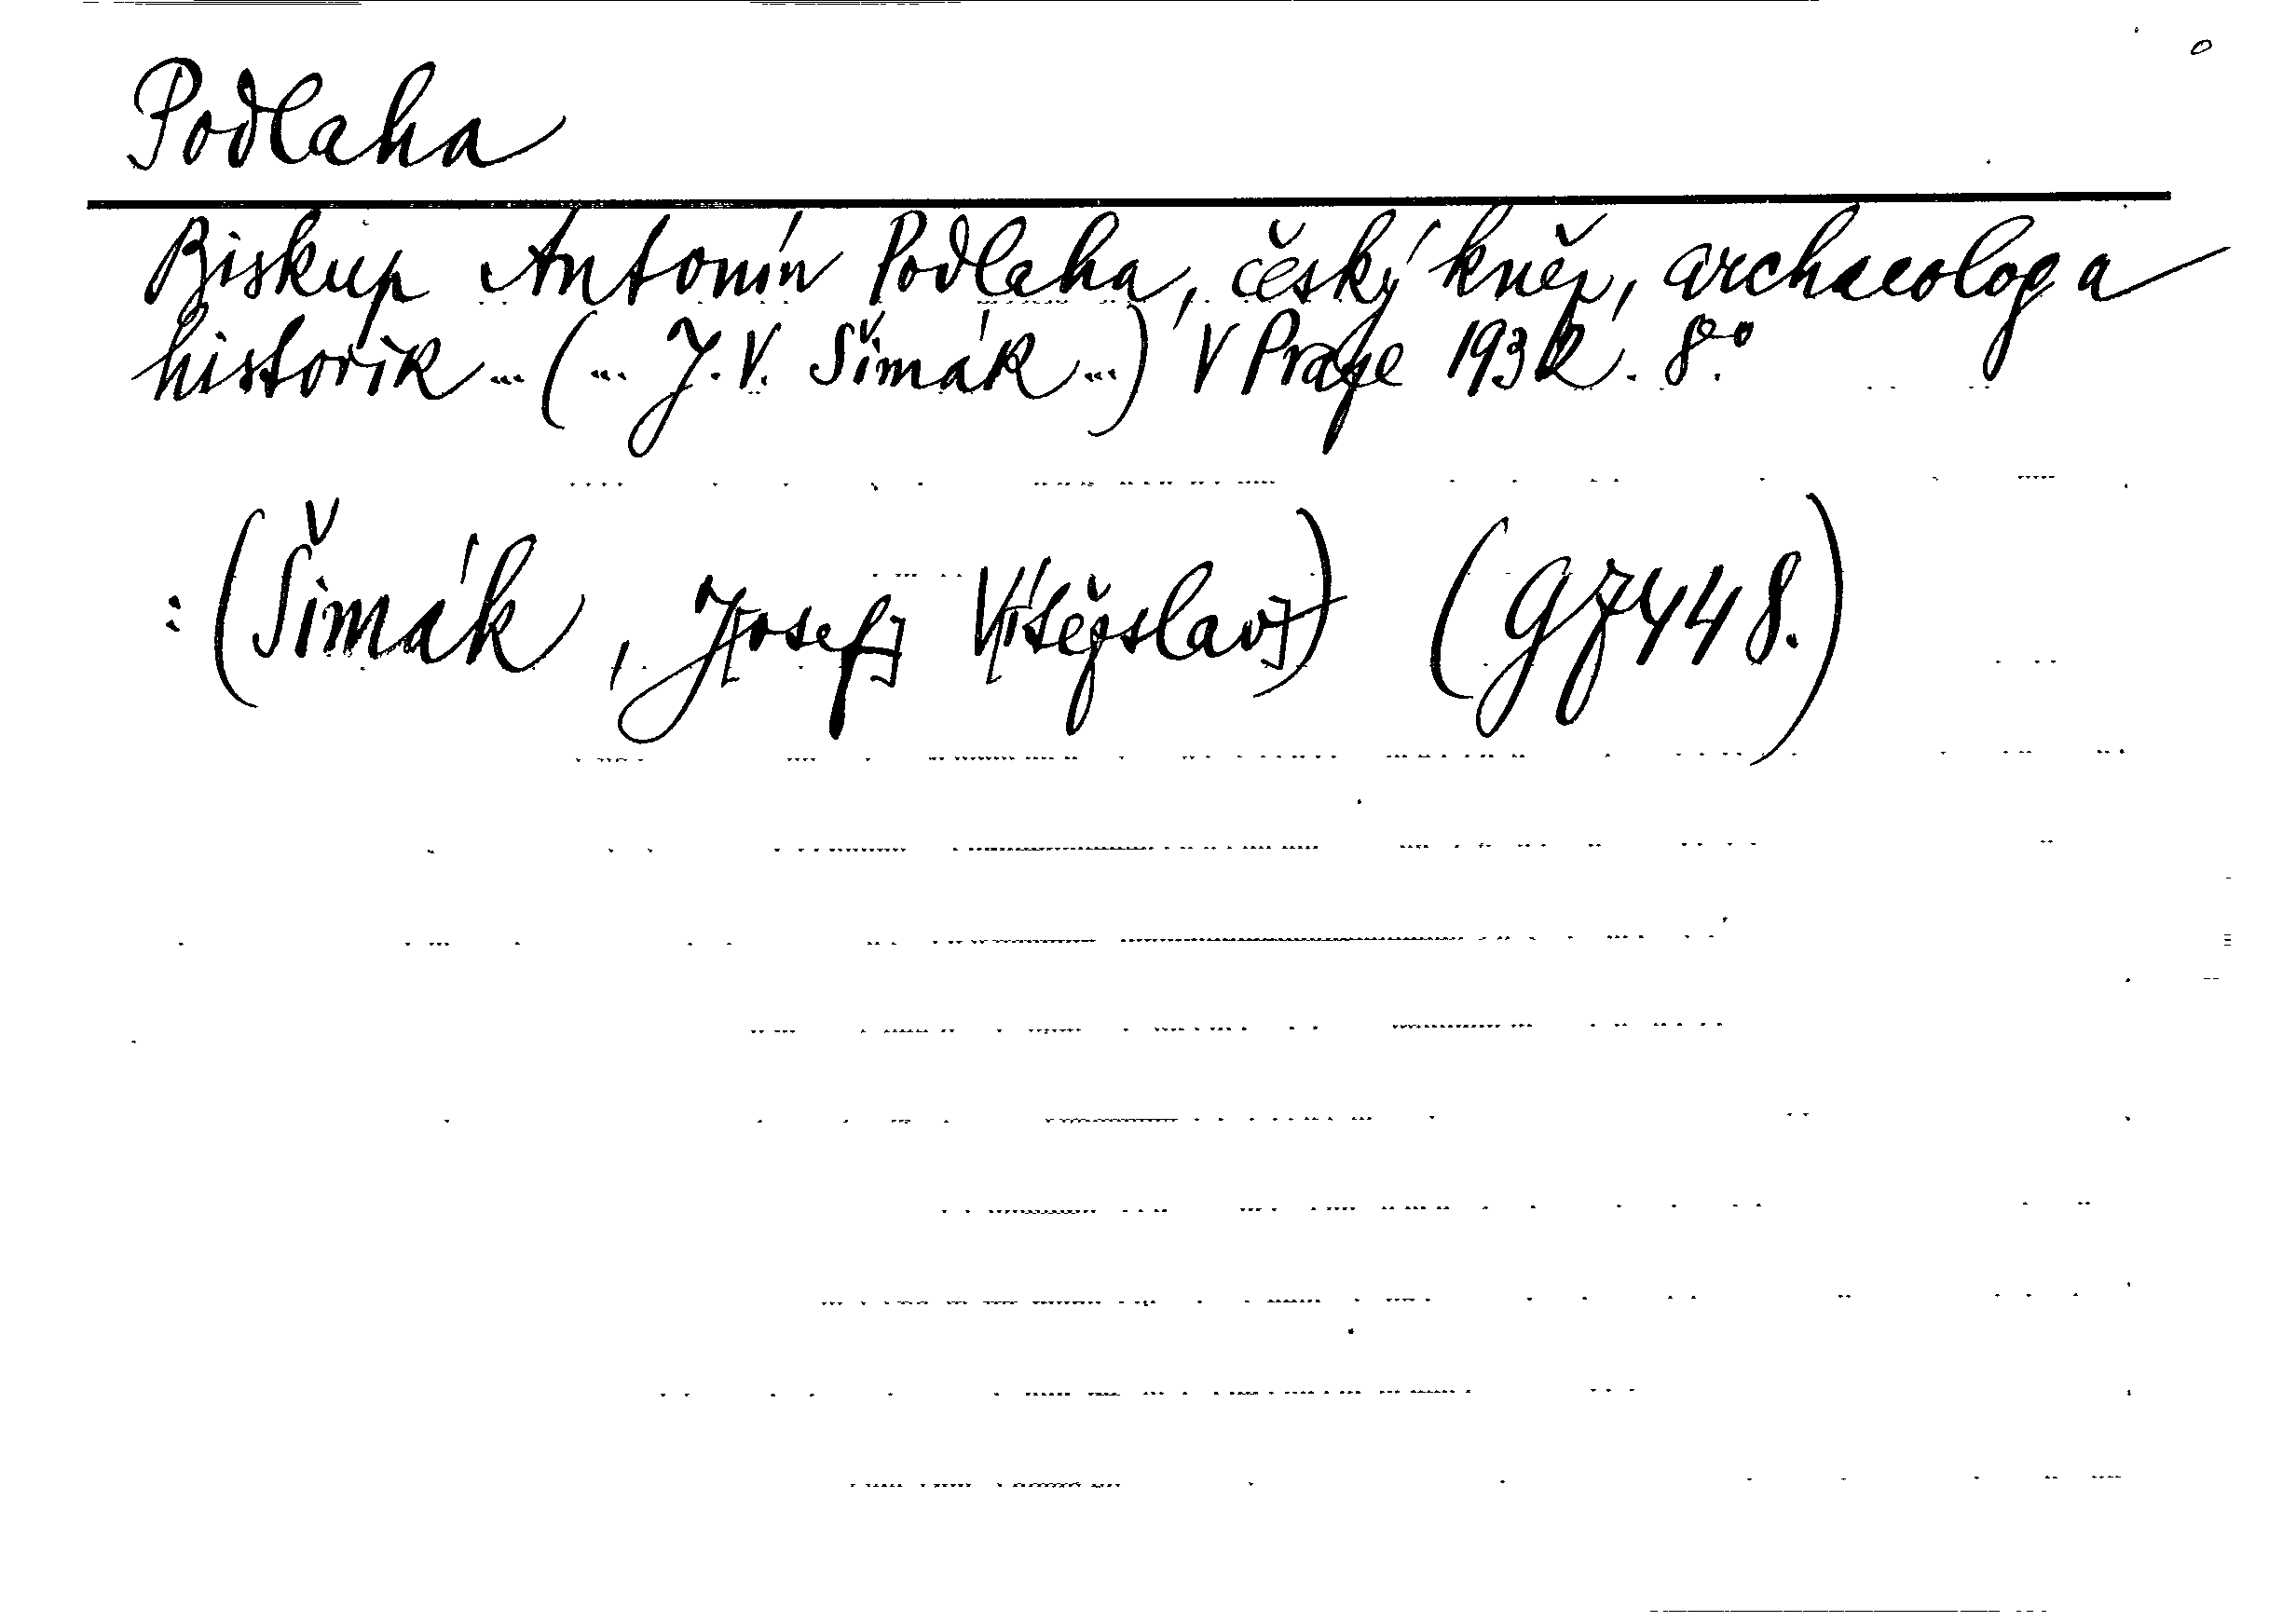 Podlaha
Biskup Antonín Podlaha, český kněz, archaeolog a
historik ... (... J. V. Šimák ...) V Praze 1932. 8°.
: (Šimák, J[osef] V[ítězslav]) (G 7448.)